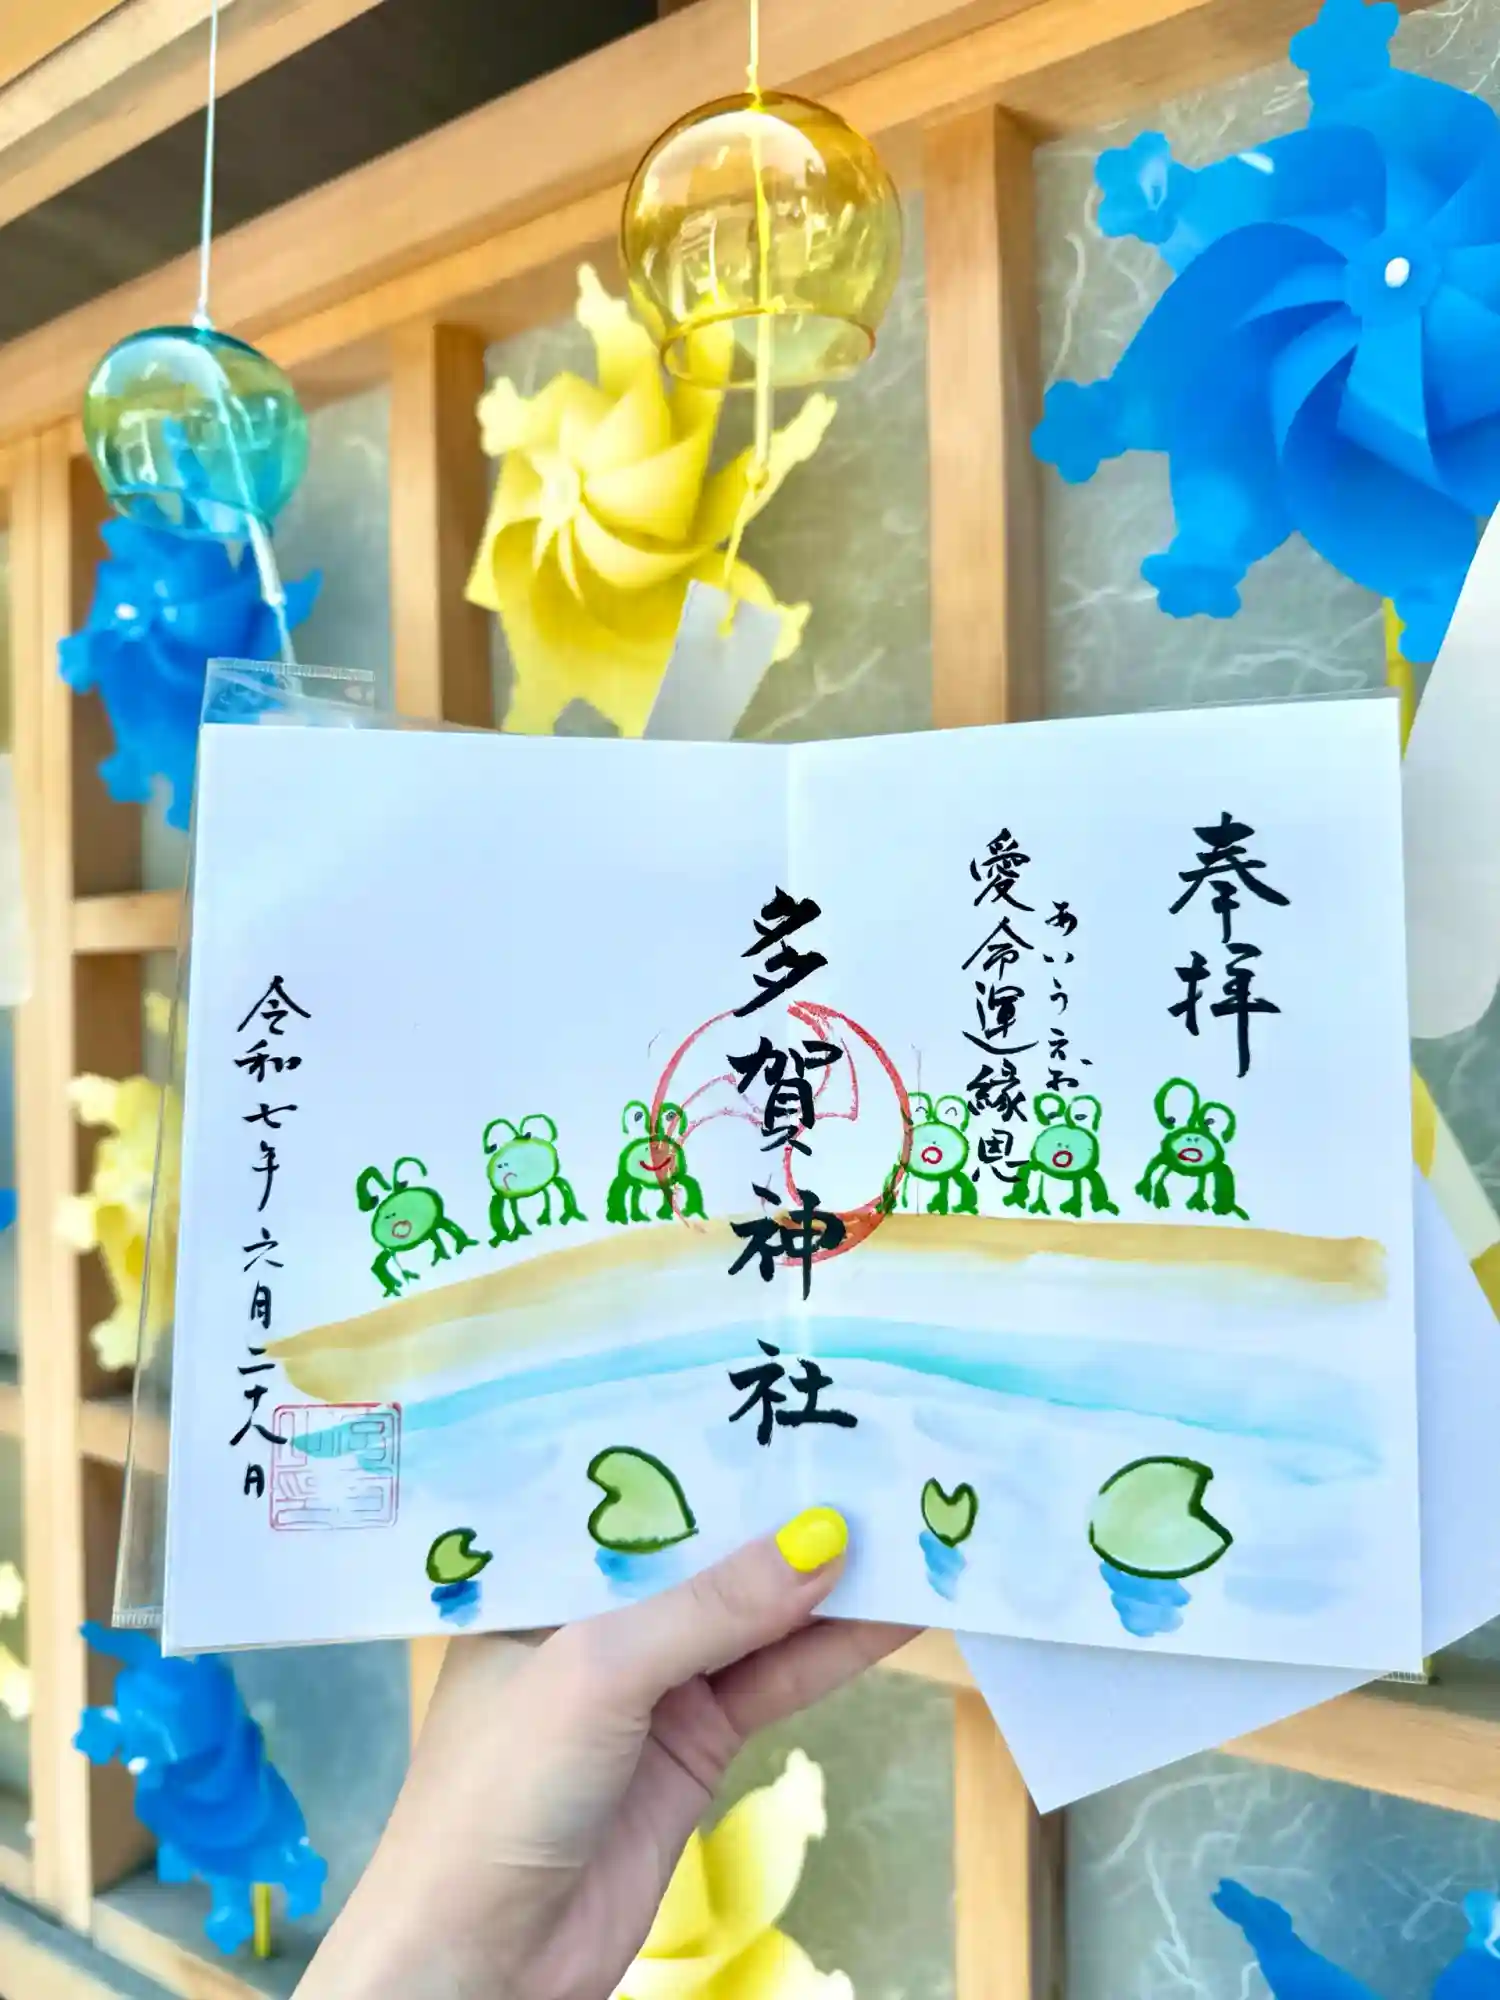 奉拝
あいうえお
愛命運縁恩
多賀神社
令和七年六月二十八日